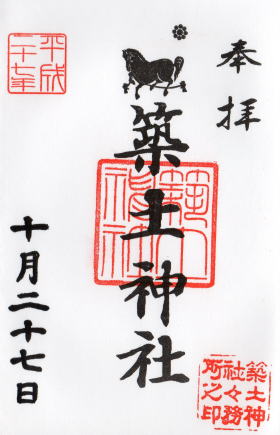 奉拝
築土神社
築土神社
十月二十七日
平成
二十七年
築土神
社々務
所之印